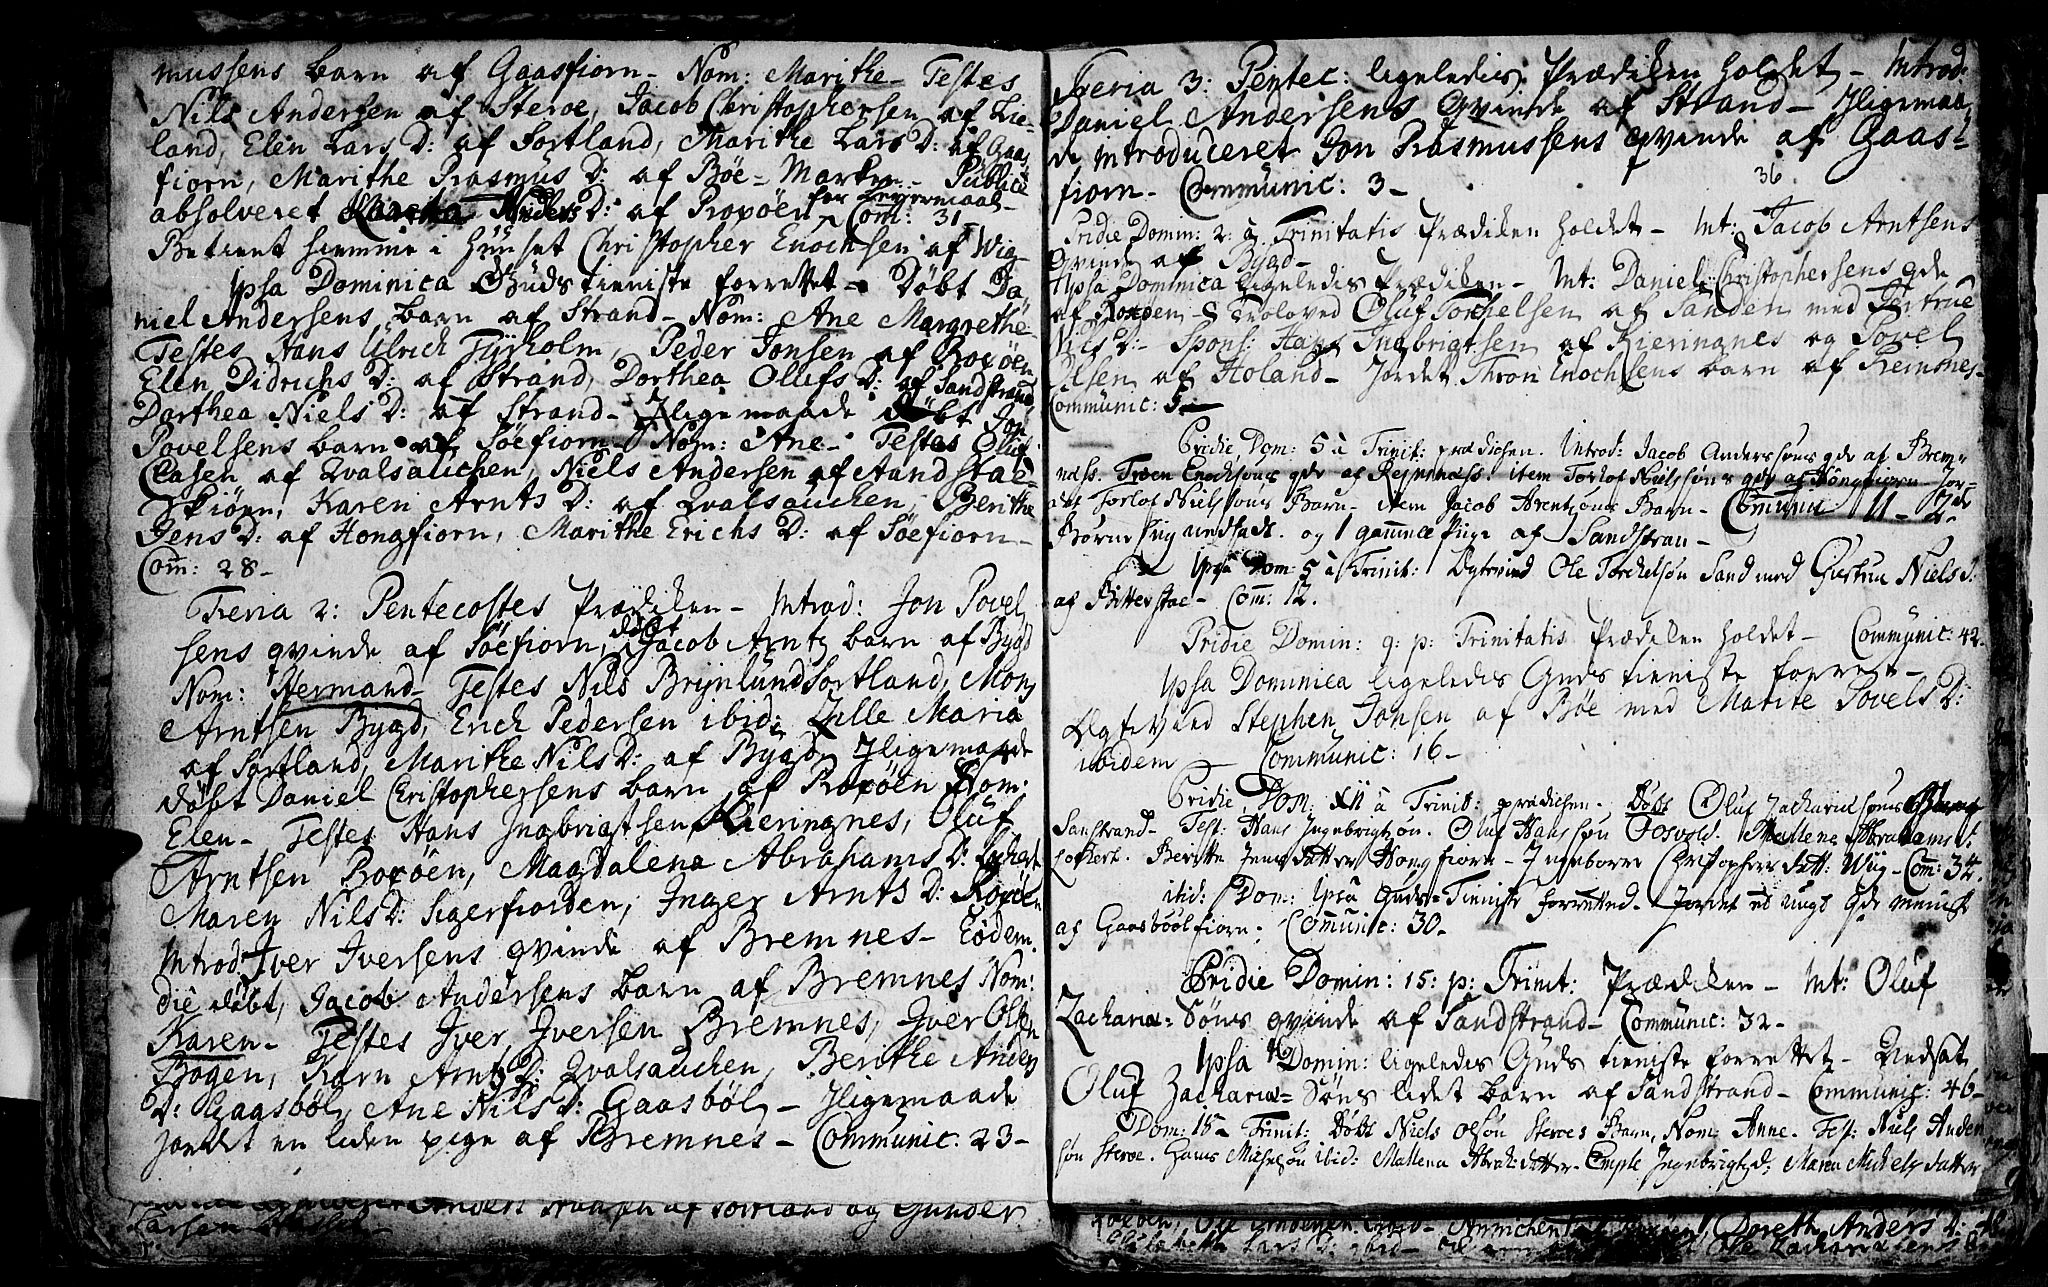 mussens barn af Gaasfiorn - Nom: Marithe - Testes
Nils Andersen af Steroe, Jacob Christophersen af Lie-
land, Elen Lars D: af Sortland, Marithe Lars D: af Gaas
fiorn, Marithe Rasmus D: af Böe - Marken - Publicè
absolveret Anders D: af Roxöen for Leyermaal - Com: 31 -
Betient hiemme i Huuset Christopher Enochsen af Wig
Ypsa Dominica Guds tieniste forrettet - Döbt Da
niel Andersens barn af Strand - Nom: Ane Margrethe -
Testes Hans Ulrich Tyrholm, Peder Jonsen af Roxöen
Elen Didrichs D: af Strand, Dorthea Olufs D: af Sandstrand
Dorthea Niels D: af Strand - Iligemaade döbt Jon
Povelsens barn af Söefiorn - Nom: Ane - Testes Oluf
Clasen af Qvalsauchen, Niels Andersen af Aandstad-
Skiöen, Karen Arnts D: af Qvalsauchen, Berithe
Jens D: af Hongfiorn, Marithe Erichs D: af Söefiorn -
Com: 28 -
Feria 2: Pentecostes Prædiken - Introd: Jon Povel
sens qvinde af Söefiorn, döbt Jacob Arntz barn af Bygd
Nom: Hermand - Testes Nils Brynlund Sortland, Mons
Arntsen Bygd, Erich Pedersen ibid: Zille Maria
af Sortland, Marithe Nils D: af Bygd, Iligemaade
döbt Daniel Christophersens barn af Roxöen Nom:
Elen - Testes Hans Ingbrigtsen Kieringnes, Oluf
Arntsen Roxöen, Magdalena Abrahams D: Lochert
Maren Nils D: Sigerfiorden, Inger Arnts D: Roxöen
Introd: Iver Iversens qvinde af Bremnes - Eodem
die döbt, Jacob Andersens barn af Bremnes Nom:
Karen - Testes Iver Iversen Bremnes, Iver Olsen
Bogen, Karn Arnts D: Qvalsauchen, Berithe Anders
D: Gaasböl, Ane Nils D: Gaasböl - Iligemaade
jordet en liden pige af Bremnes - Communic: 23 -
Anders af Sortland og Gunder
Larsen
Feria 3: Pentec: ligeledis Prædiken holdet - Introd:
Daniel Andersens Qvinde af Strand - Iligemaa
de Introduceret Jon Rasmussens qvinde af Gaas-
fiorn - Communic: 3 -
36
Pridie Domin: 2: à Trinitatis Prædiken holdet - Int: Jacob Arntsens
Qvinde af Bygd -
Ypsa Dominica ligeledis Prædiken - Int: Daniel Christophersens qde
af Roxöen - Troloved Oluf Torchelsen af Sanden med Gertrue
Nils D: - Spons: Hans Ingbrigtsen af Kieringnes og Povel
Olsen af Holand - Jordet Thron Enochsens barn af Remnes -
Communic: 5 -
Pridie Dom: 5 à Trinit: prædichen. Introd: Jacob Anderssöns qde af Brem-
næss. Troen Enochsöns qde af Rejnenæss. item Torlof Nielssöns qde af Höngfiorn - Jor-
det Torlof Nielssöns Barn - item Jacob Arentsöns Barn - Communic 11 - 2de
Börne sig uedsadt. og 1 gammel Pige af Sandstran -
Ypsa Dom 5 à Trinit: Egteviud Ole Torchelsön Sand med Giertrue Niels D:
af Bitterstae - Com: 12.
Pridie Domin: 9: p: Trinitatis Prædiken holdet - Communic: 42.
Ypsa Dominica ligeledis Guds tieniste forrett -
Egtevied Stephen Jonsen af Böe med Marite Povels D:
ibidem - Communic: 16 -
Pridie Dom: XII à Trinit: prædichen. Döbt Oluf Zachariæsöns
Sanstrand - Test: Hans Ingebrigtsön. Oluf Hanssön Osvold. Mallene Abrahams D:
Lochert. Beritte Jens datter Höngfiorn - Ingeborre Christophers datt: Wiig - Com: 34.
itid: Dom: Ipsa Guds-Tieniste forretted - Jordet et ungt qde menische
af Gaasböölfiorn. Communic: 30 -
Pridie Domin: 15: p: Trinit: Prædiken - Int: Oluf
Zachariæ-Söns qvinde af Sandstrand - Communic: 32 -
Ypsa Domin: ligeledis Guds tieniste forrettet - Nedsat
Oluf Zachariæ-Söns lidet barn af Sandstrand - Communic: 46 -
Dom: 15 - Trinit: Döbt Niels Olsön Steroes Barn, Nom Anne. Test: Niels Ander
sön Steroe. Hans Michelsön ibid: Mallena Abrah: datter - Ingebrigts D: Maren Michels datter
Roxöen, Ole Andersen Doreth Anders D:
Lars D: